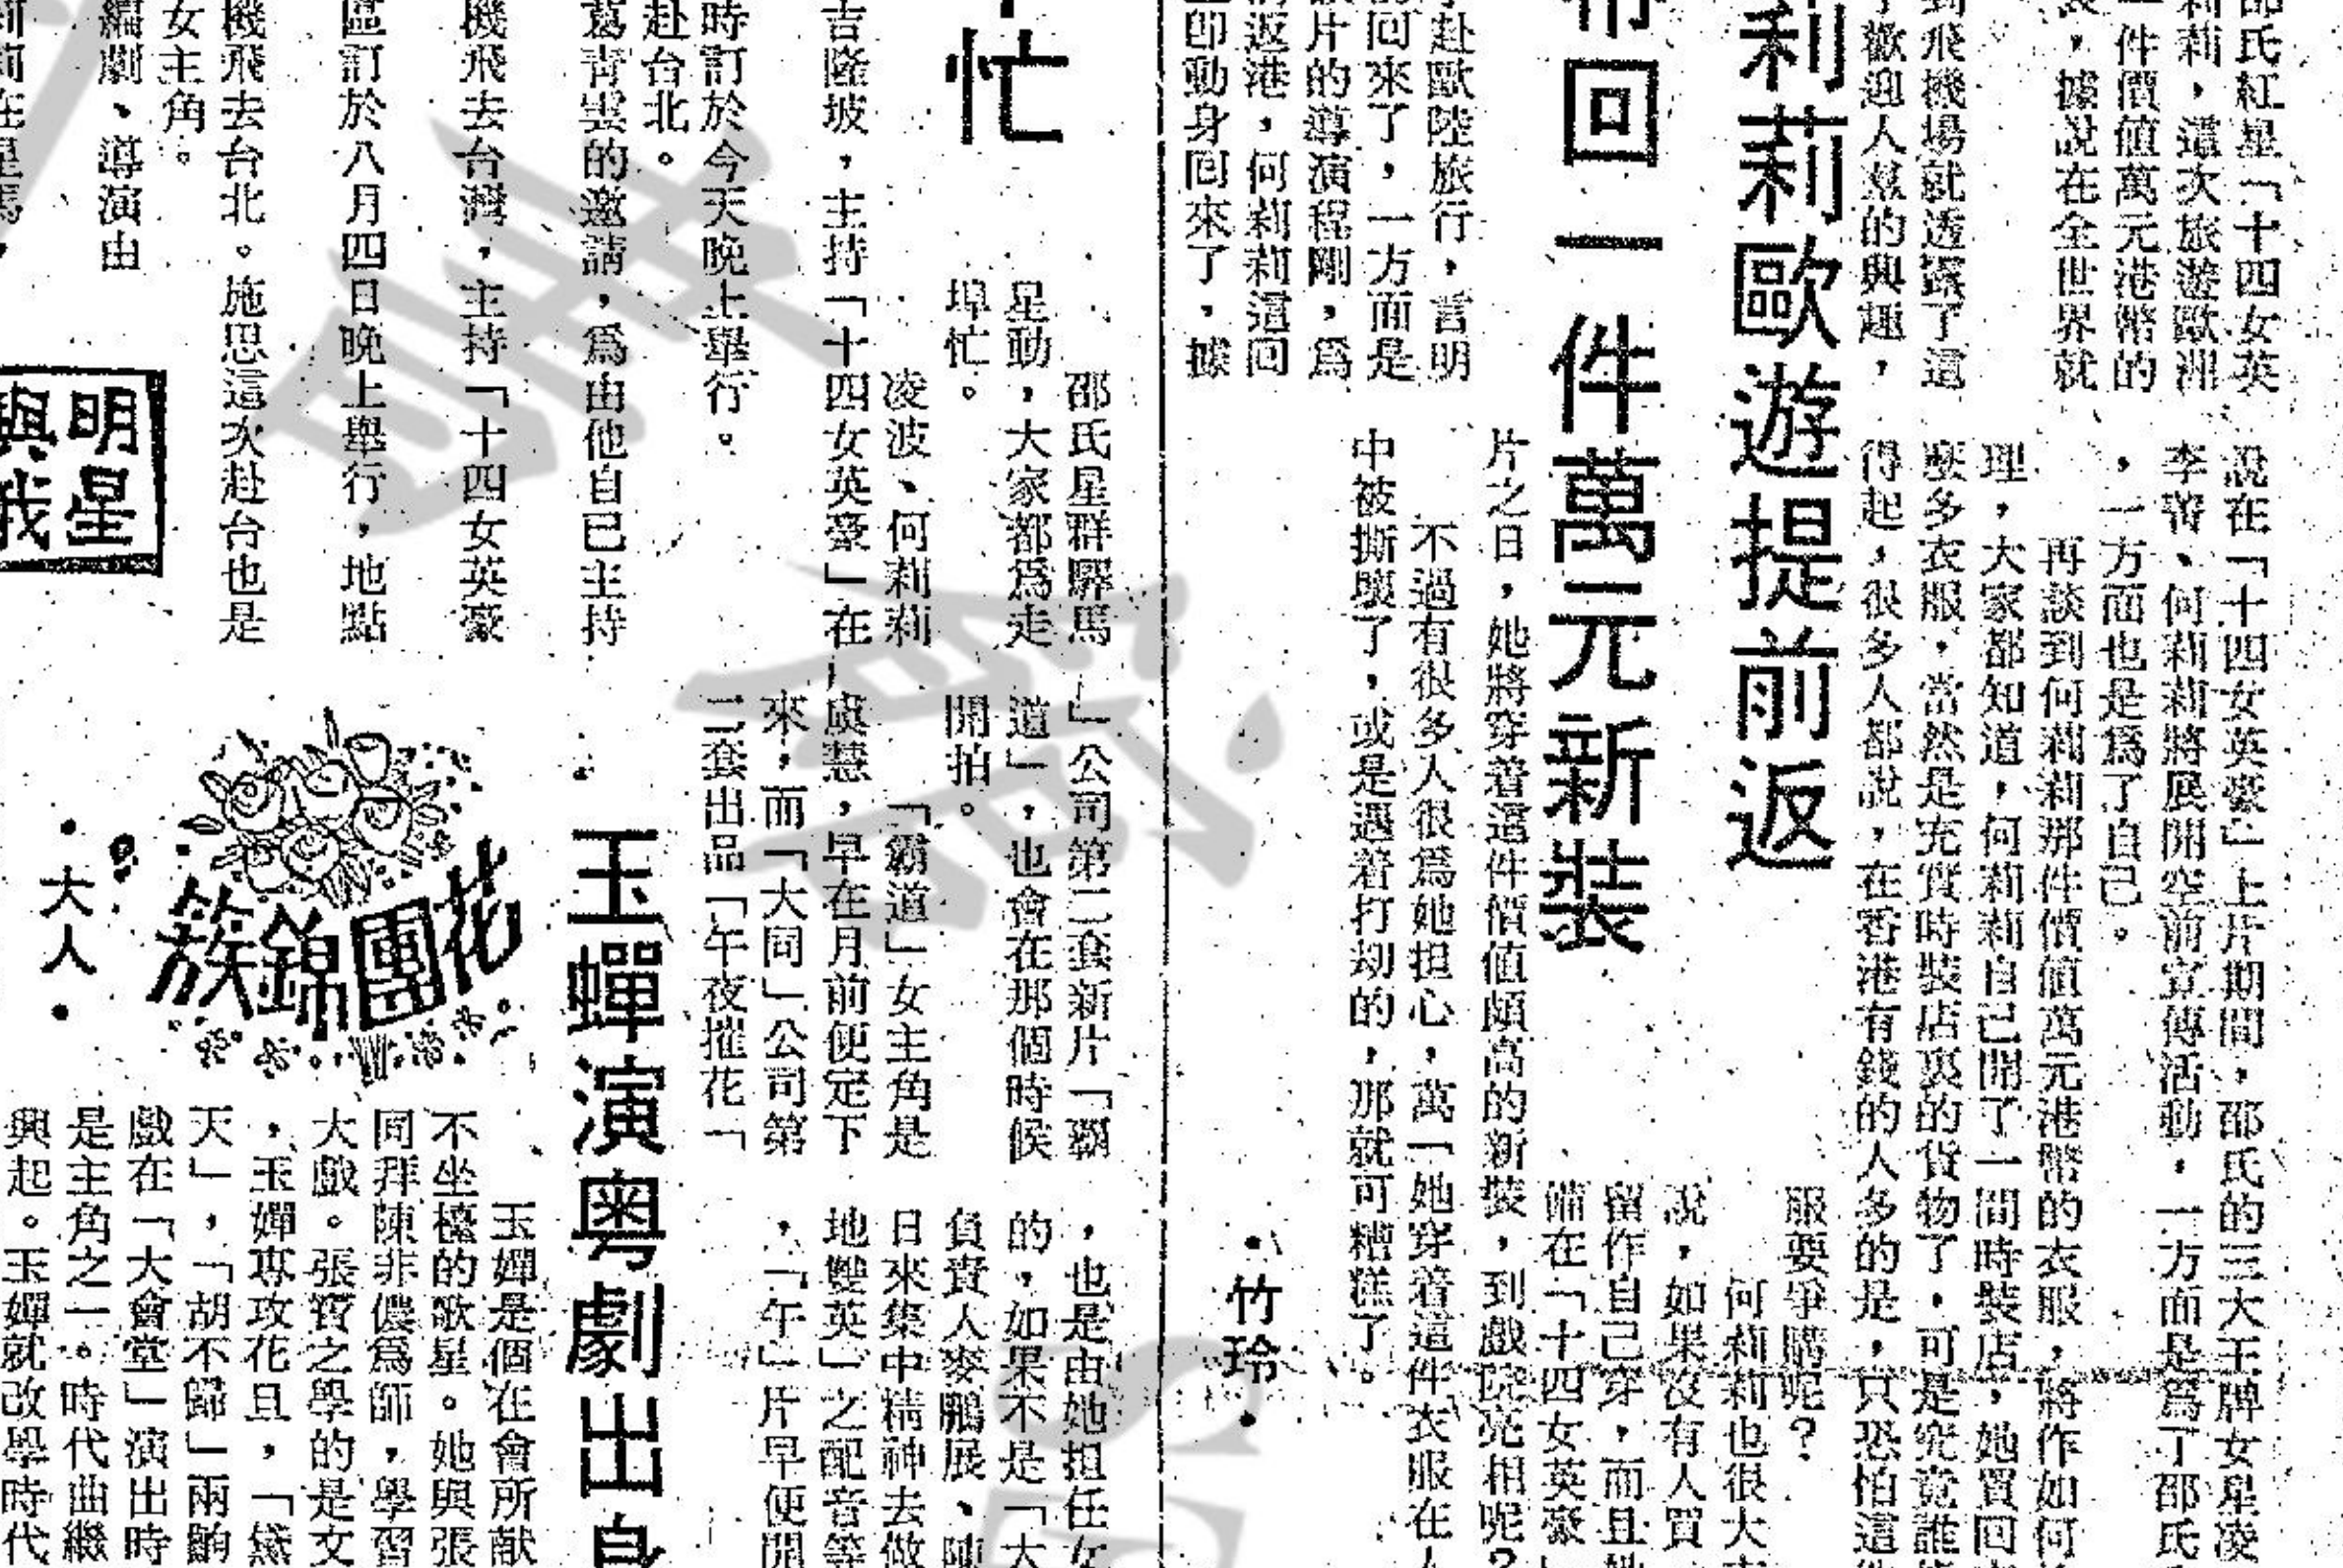 莉莉歐遊提前返
帶回一件萬元新裝
邵氏紅星「十四女英
莉莉，這次旅遊歐洲
一件價值萬元港幣的
裝，據說在全世界就
到飛機場就透露了這
了歡迎人羣的興趣，
赴歐陸旅行，言明
的回來了，一方面是
該片的導演程剛，爲
返港，何莉莉這回
立即動身回來了，據
說在「十四女英豪」上片期間，邵氏的三大王牌女星凌
李菁、何莉莉將展開空前宣傳活動，一方面是爲了邵氏
，一方面也是爲了自己。
再談到何莉莉那件價值萬元港幣的衣服，將作如何
理，大家都知道，何莉莉自己開了一間時裝店，她買回
麽多衣服，當然是充實時裝店裏的貨物了，可是究竟誰
得起，很多人都說，在香港有錢的人多的是，只恐怕這
服要爭購呢？
何莉莉也很大
說，如果沒有人買
留作自己穿，而且她
備在「十四女英豪」
片之日，她將穿着這件價值頗高的新裝，到戲院亮相呢？
不過有很多人很爲她担心，萬一她穿着這件衣服在人
中被撕壞了，或是遇着打刼的，那就可糟糕了。
•竹玲•
忙
邵氏星群驛馬
星動，大家都爲走
埠忙。
凌波、何莉莉
「十四女英豪」在
吉隆坡，主持
時訂於今天晚上舉行。
赴台北。
葛青雲的邀請，爲由他自己主持
機飛去台灣，主持「十四女英豪
區訂於八月四日晚上舉行，地點
機飛去台北。施思這次赴台也是
女主角。
編劇、導演由
莉莉在星馬，
明星
與我
」公司第二套新片「霸
道」，也會在那個時候
開拍。
「霸道」女主角是
虞慧，早在月前便定下
來，而「大同」公司第
二套出品「午夜摧花」
，也是由她担任女
的，如果不是「大
負責人麥鵬展、陳
日來集中精神去做
地雙英」之配音等
，「午」片早便開
玉蟬演粵劇出身
花團錦簇
•大人•
玉嬋是個在會所献
不坐檯的歌星。她與張
同拜陳非儂爲師，學習
大戲。張寶之學的是文
，玉嬋專攻花旦，「黛
天」，「胡不歸」兩齣
戲在「大會堂」演出時
是主角之一。時代曲繼
興起。玉嬋就改學時代